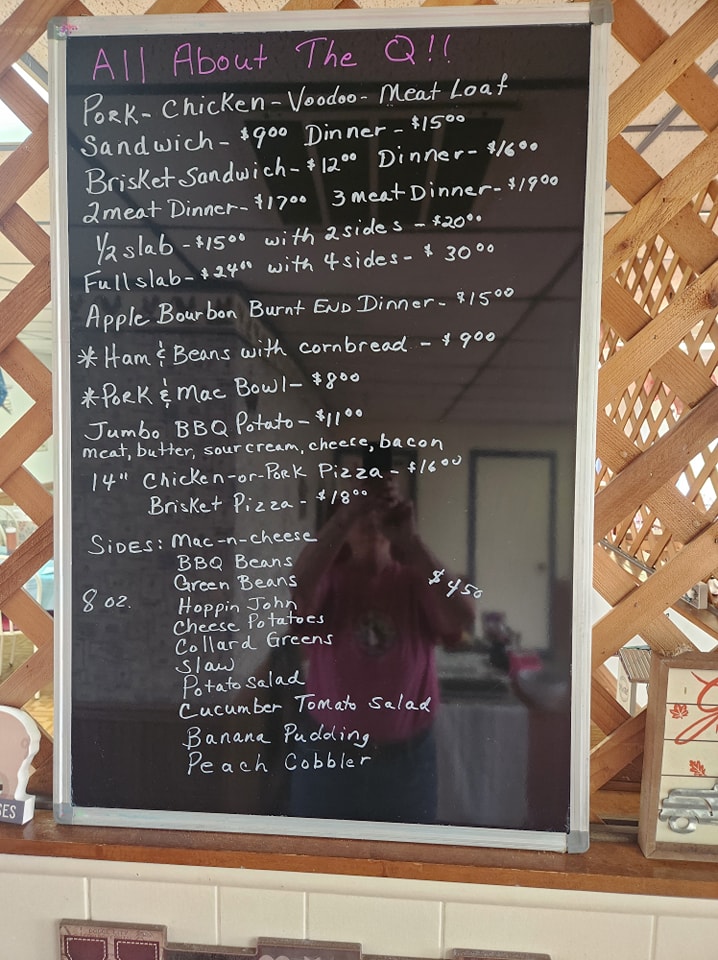 All About The Q!!
Pork- Chicken- Voodoo- Meat Loaf
Sandwich- $9.00 Dinner- $15.00
Brisket Sandwich- $12.00 Dinner- $16.00
2meat Dinner- $17.00 3 meat Dinner- $19.00
1/2 slab - $15.00 with 2 sides - $20.00
Full slab- $24.00 with 4 sides- $ 30.00
Apple Bourbon Burnt END Dinner- $15.00
* Ham & Beans with cornbread - $9.00
* Pork & Mac Bowl- $8.00
Jumbo BBQ Potato- $11.00
meat, butter, sour cream, cheese, bacon
14" Chicken-or-Pork Pizza - $16.00
Brisket Pizza - $18.00
Sides: Mac-n-cheese
BBQ Beans
Green Beans
$4.50
8 oz. Hoppin John
Cheese Potatoes
Collard Greens
Slaw
Potato Salad
Cucumber Tomato Salad
Banana Pudding
Peach Cobbler
SES